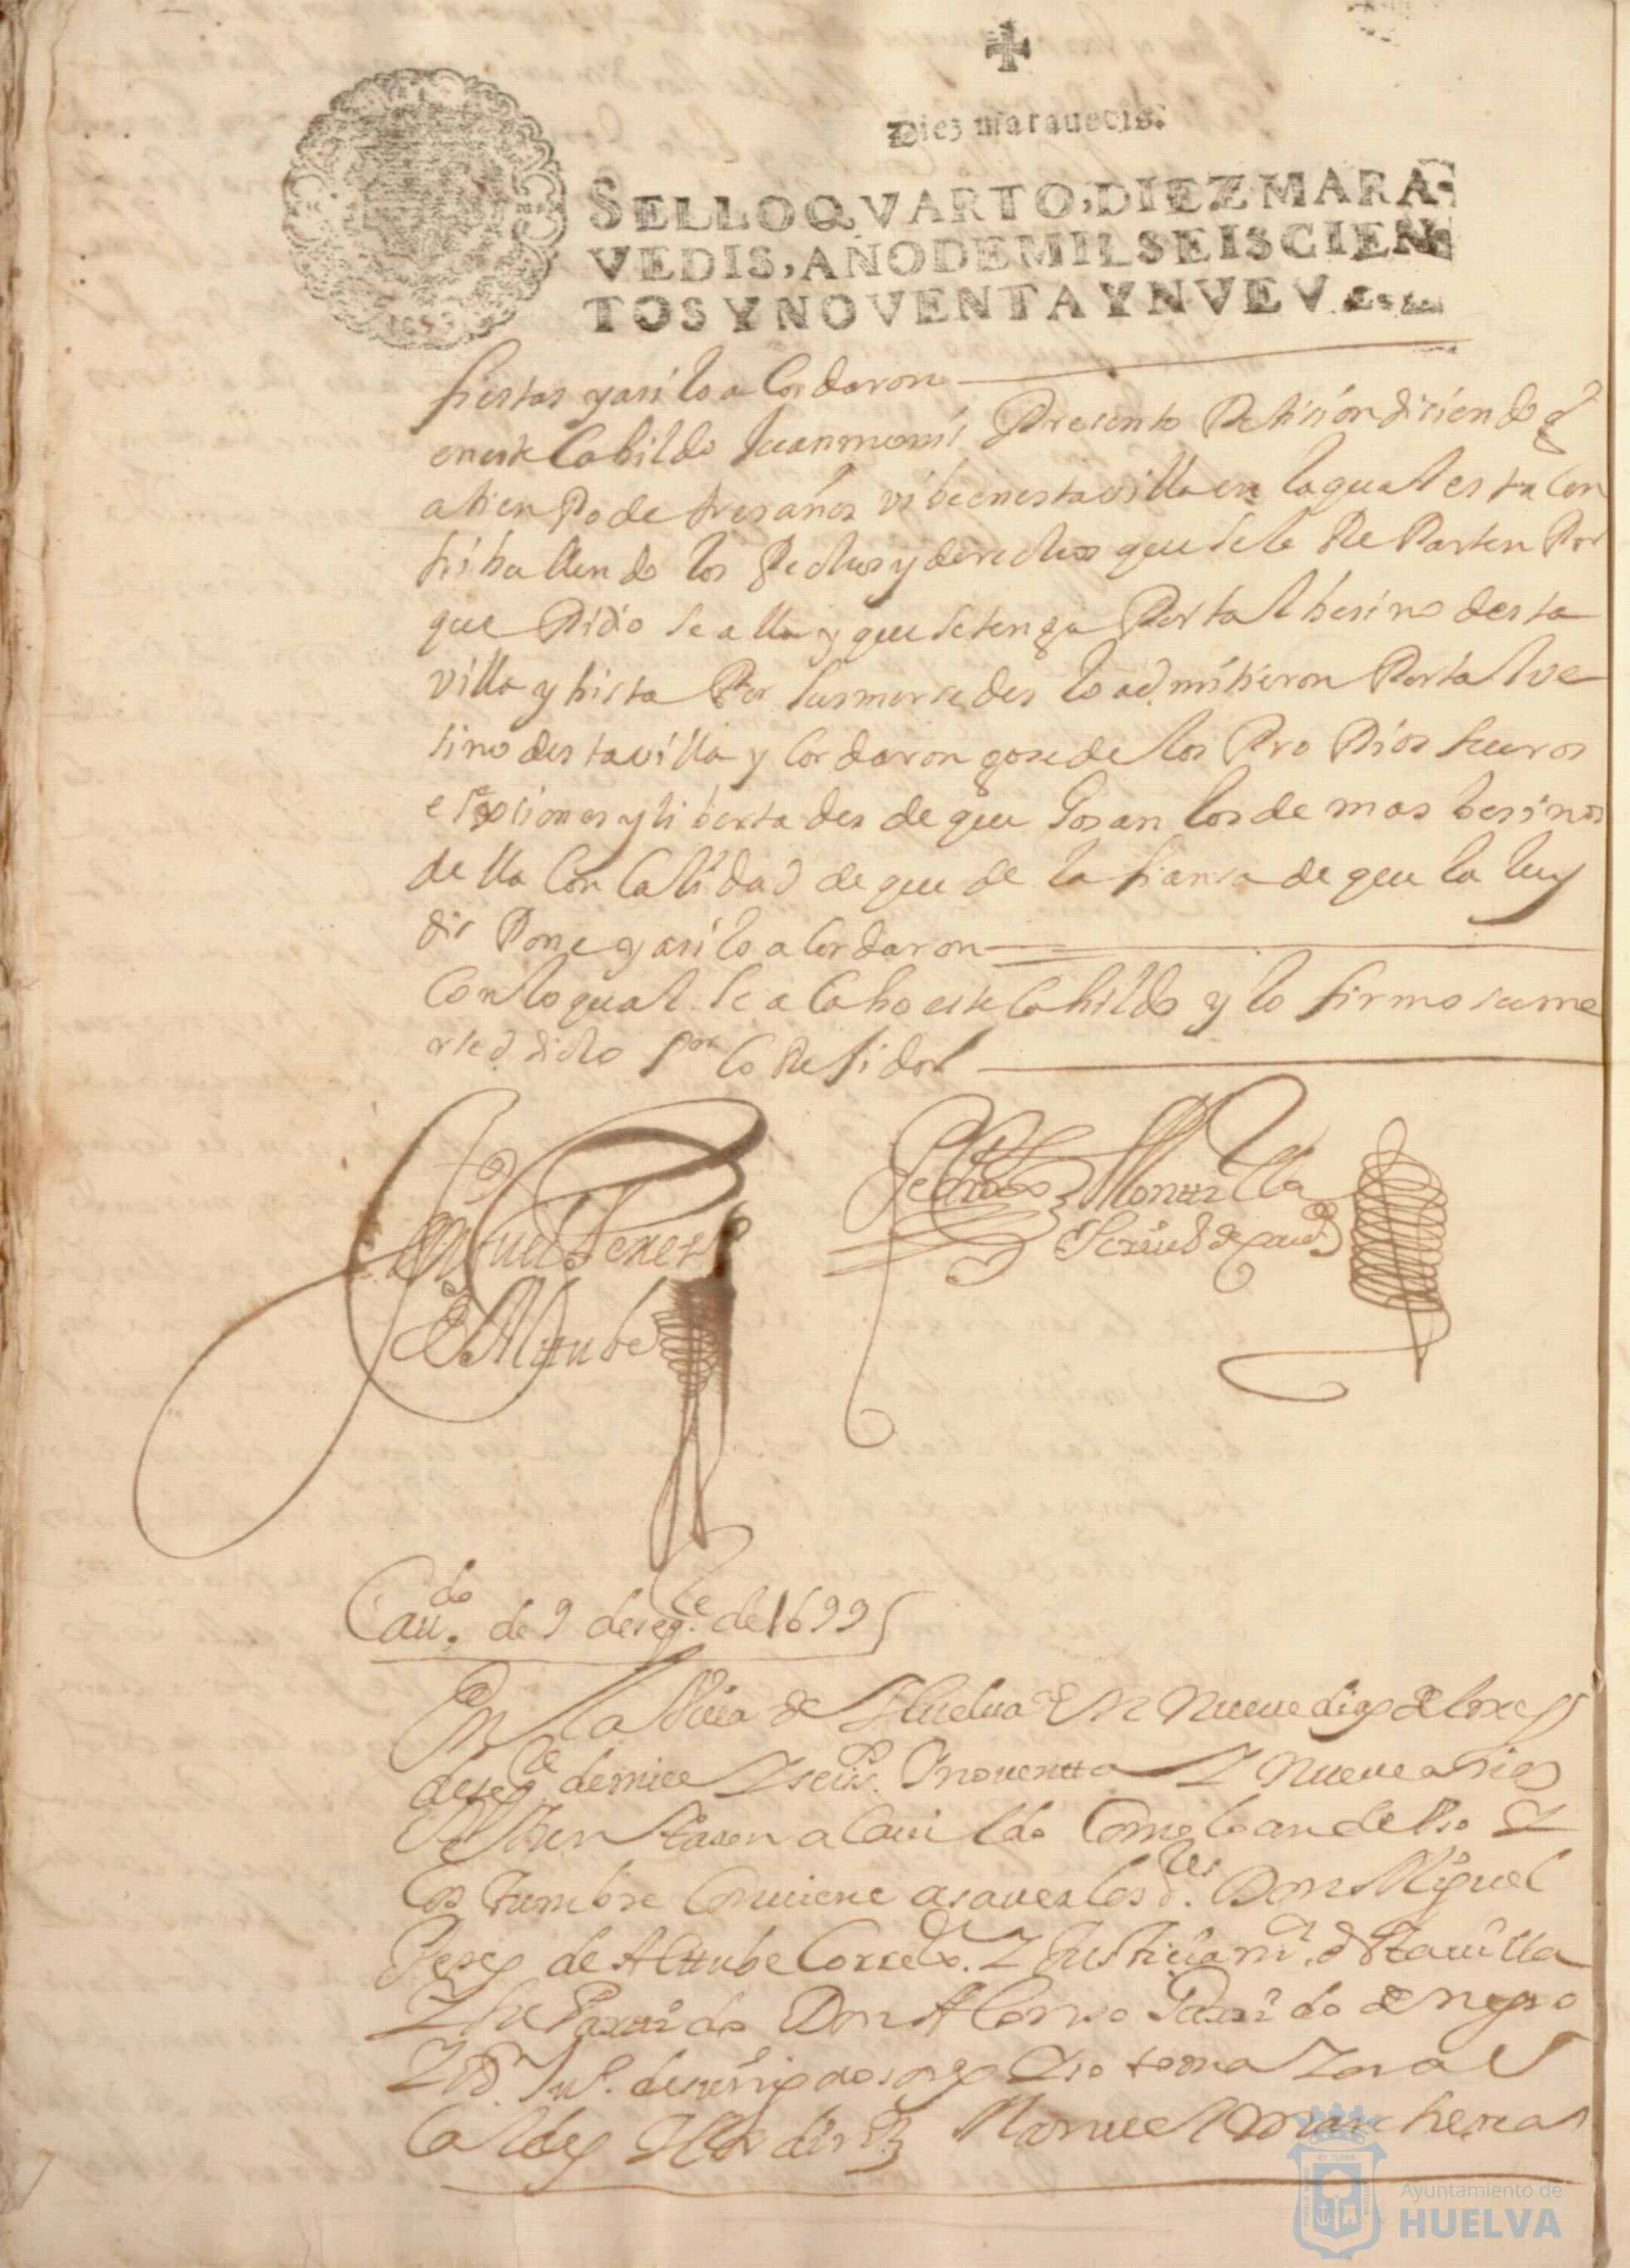 Diez marauedis.
SELLO QVARTO, DIEZ MARA-
VEDIS, AÑO DE MIL SEISCIEN
TOS Y NOVENTA Y NVEVE
1699
fiestas y asi lo acordaron
en este Cabildo Juan Presento Petision disiendo q
a tienpo de tres años vibe en esta villa en la qual esta con
tribullendo los Pechos y derechos que se le Reparten Por
que Pidio se alla y que se tenga Por tal besino desta
villa y bista Por sus mersedes lo admitieron Por tal ve
sino desta villa y Cordaron gose de los ProPios fueros
esepsiones y libertades de que Gosan los demas besinos
della Con Calidad de que de la fiansa de que la ley
disPone y asi lo aCordaron
Con lo qual se aCabo este Cabildo y lo firmo su me
rsed dicho sor CoRexidor
Miguel Perez
de Alttube
Pedro Monttilla
Scriuo de caudo
Caudo de 9 de sepe de 1699
En la Villa de Huelua En Nueue dias del mes
de sepe de mill Y seiss Y nouentta Y Nueue años
Se Juntaron a Cauildo Como lo an de Vso Y
Costumbre Conuiene a sauer los sres Don Miguel
Perez de Alttube Corredor Y Justicia mor desta uilla
Y su Parttido Don Alonso Garrido de negro
Y
Caldes Hordinos Manuel marchena
Ayuntamiento de
HUELVA